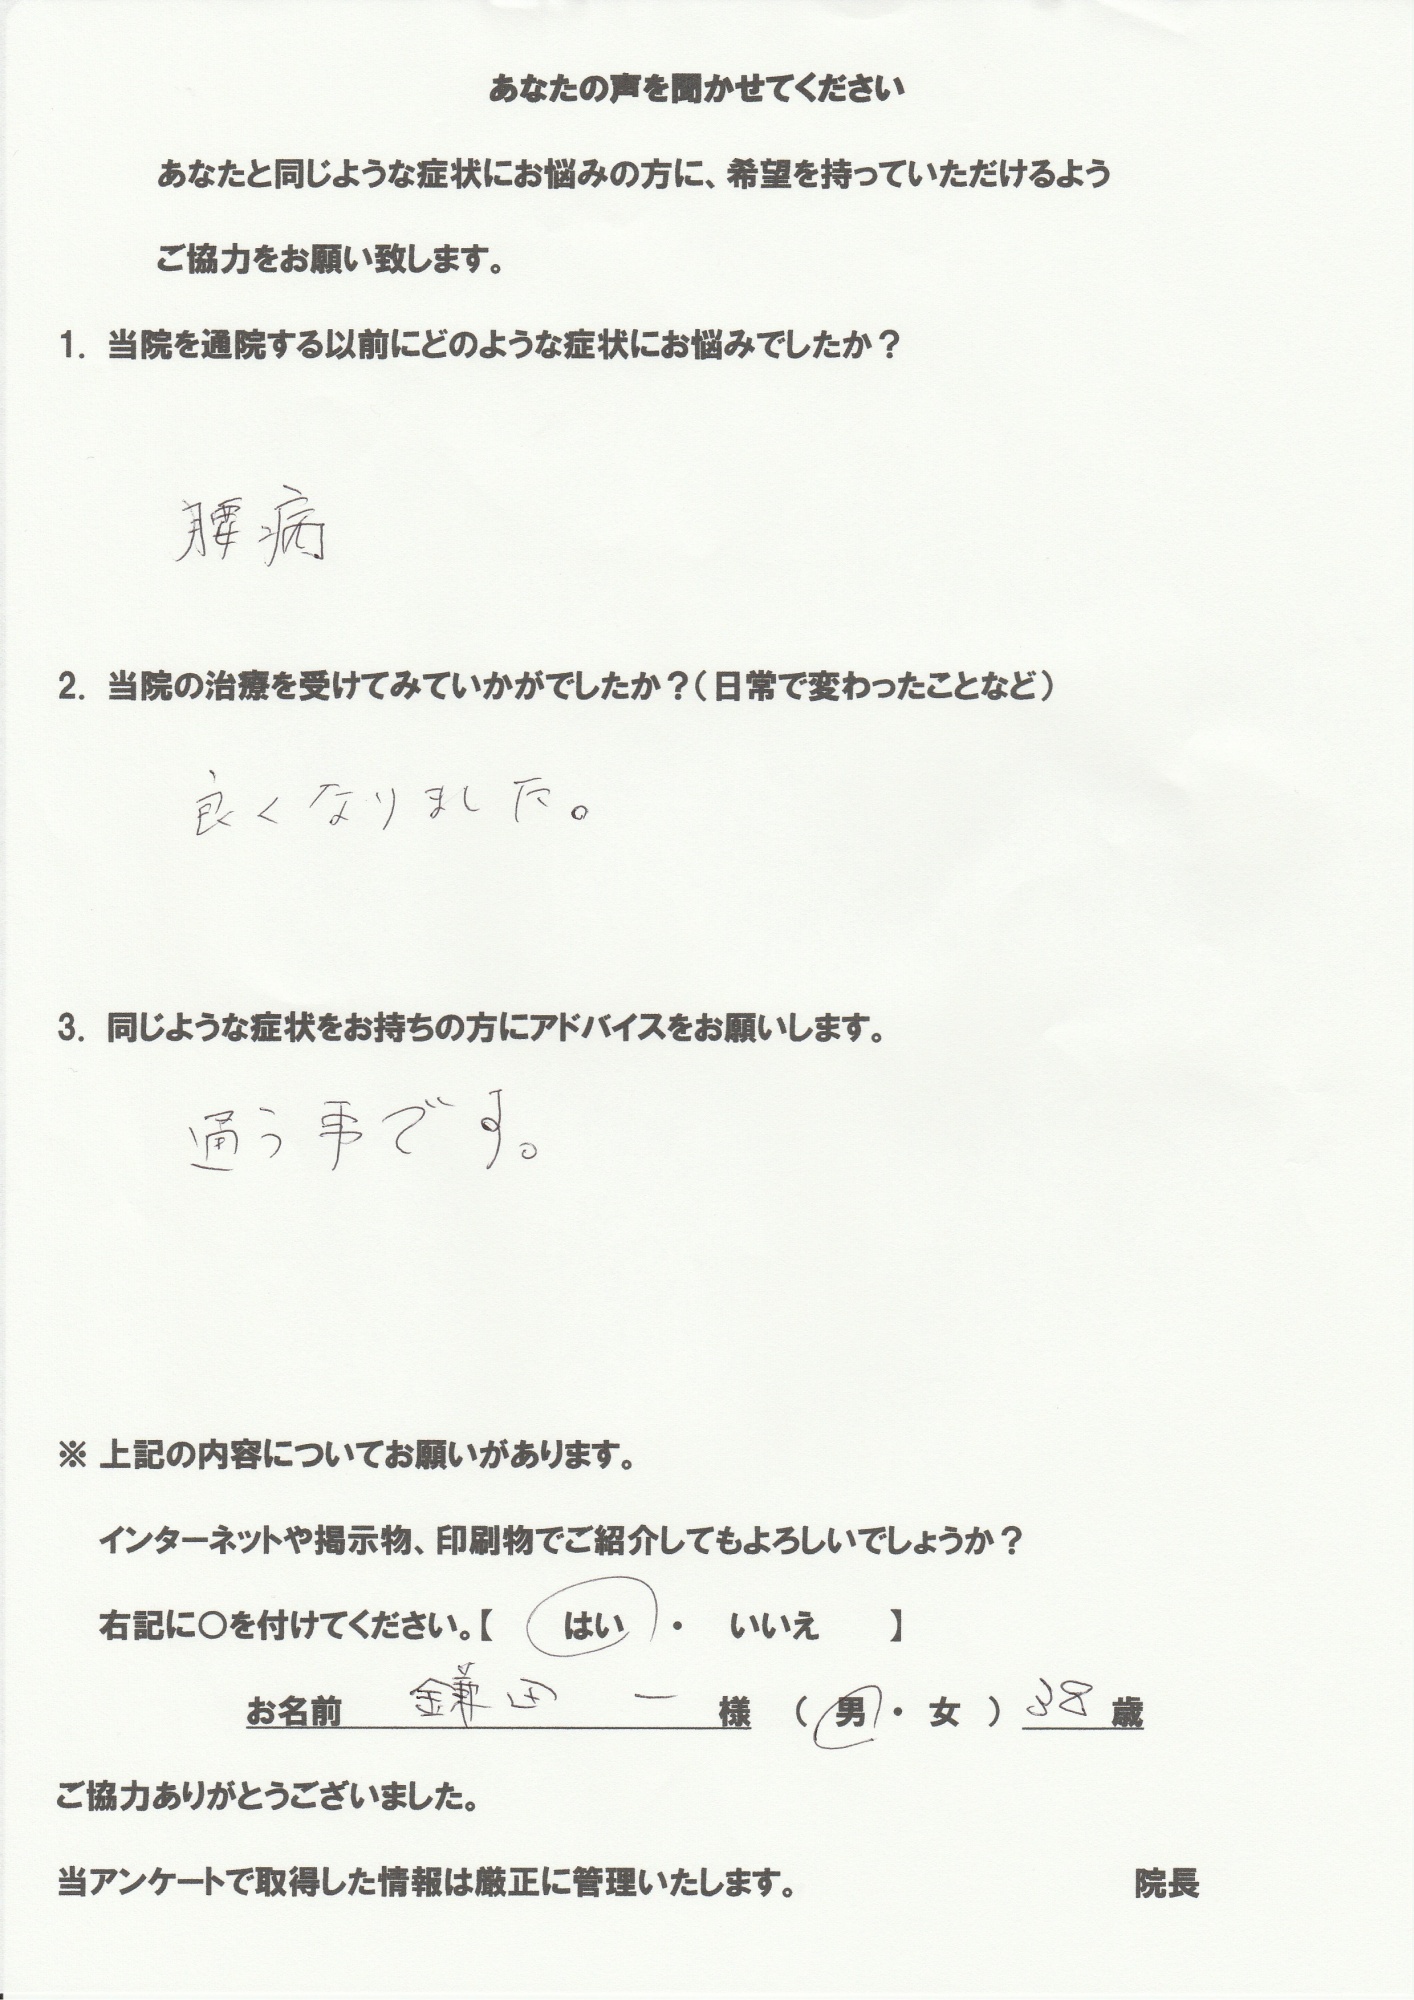 あなたの声を聞かせてください
あなたと同じような症状にお悩みの方に、希望を持っていただけるよう
ご協力をお願い致します。
1. 当院を通院する以前にどのような症状にお悩みでしたか？
腰病
2. 当院の治療を受けてみていかがでしたか？（日常で変わったことなど）
良くなりました。
3. 同じような症状をお持ちの方にアドバイスをお願いします。
通う事です。
※ 上記の内容についてお願いがあります。
インターネットや掲示物、印刷物でご紹介してもよろしいでしょうか？
右記に○を付けてください。【 はい ・ いいえ 】
お名前 鎌田 一 様 （ 男 ・ 女 ） 38 歳
ご協力ありがとうございました。
当アンケートで取得した情報は厳正に管理いたします。 院長